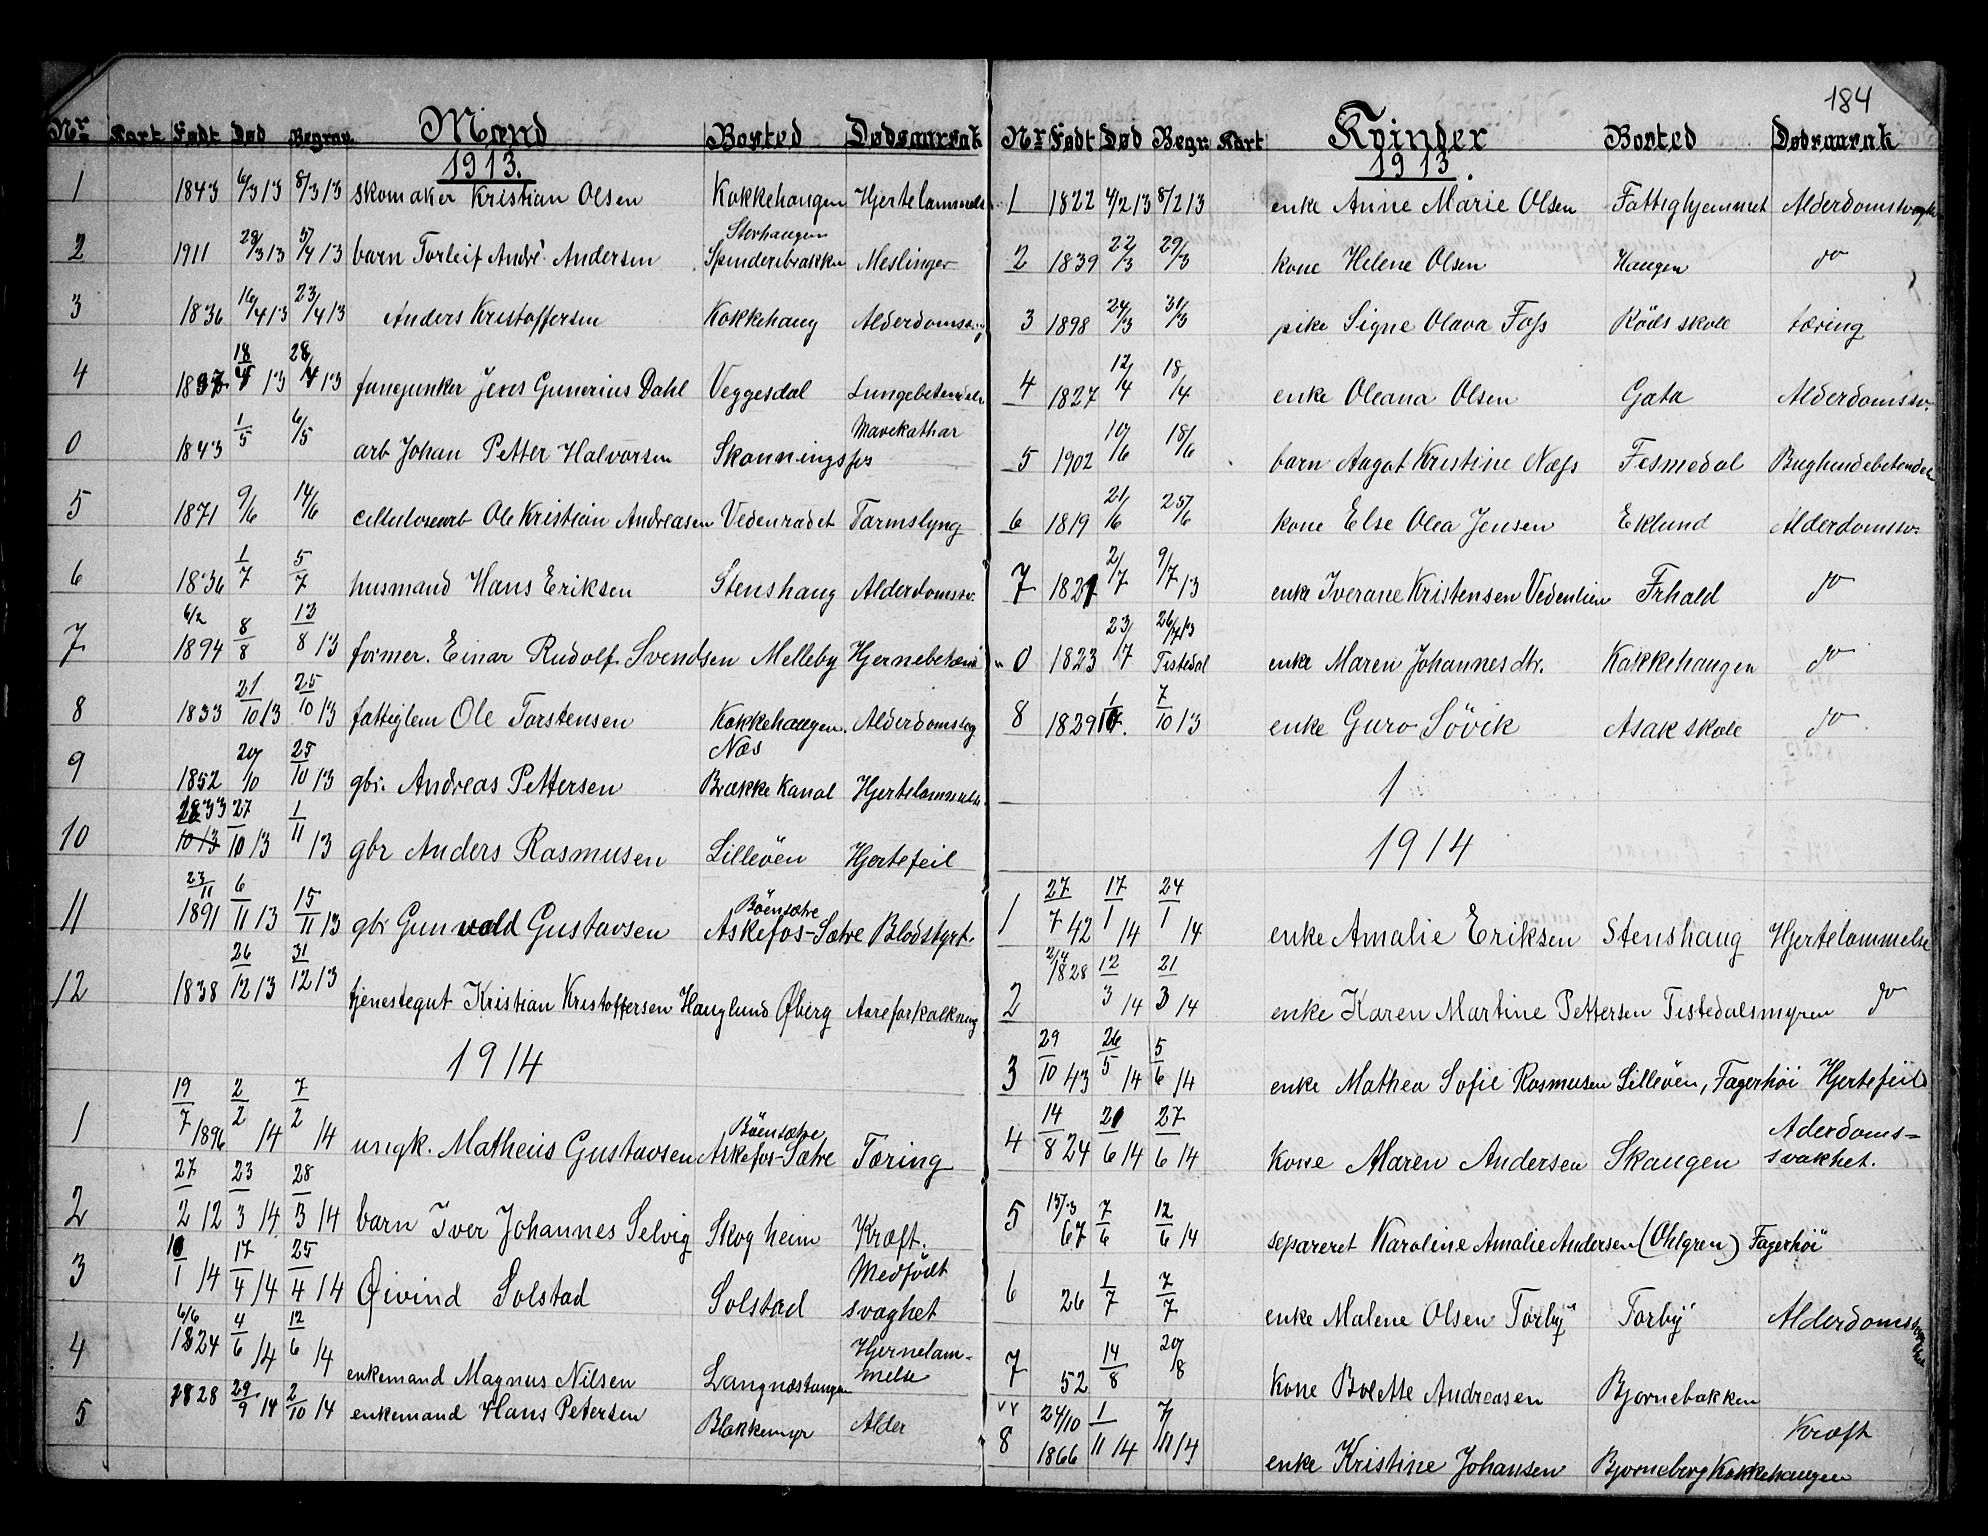 184
Nr Kart Født Død Begrav. Mænd Bosted Dødsaarsak
1913.
1 1843 6/3 13 8/3 13 skomaker Kristian Olsen Kokkehaugen Hjertelammelse
2 1911 29/3 13 5/4 13 barn Torleif André Andersen Storhaugen Spinderibrakke Meslinger
3 1836 16/4 13 23/4 13 Anders Kristoffersen Kokkehaug Alderdomssv.
4 1837 18/4 13 28/4 13 fanejunker Jens Gunerius Dahl Veggesdal Lungebetendelse
0 1843 1/5 6/5 arb Johan Petter Halvorsen Skonningsfos Mavekathar
5 1871 9/6 14/6 cellulosearb Ole Kristian Andreasen Vedenradet Tarmslyng
6 1836 1/7 5/7 husmand Hans Eriksen Stenshaug Alderdomssv.
7 6/2 1894 8/8 13/8 13 former. Einar Rudolf Svendsen Melleby Hjernebetænd
8 1833 21/10 13 25/10 13 fattiglem Ole Torstensen Kokkehaugen. Alderdomssvag
9 1852 20/10 25/10 13 gbr. Andreas Pettersen Næs Brække Kanal Hjertelammelse
10 1833 10/13 27/10 13 1/11 13 gbr Anders Rasmusen Lilleöen Hjertefeil
11 23/11 1891 6/11 13 15/11 13 gbr Gunvald Gustavsen Böensætre Askefos-Sætre Blodstyrt.
12 1838 26/12 13 31/12 13 tjenestegut Kristian Kristoffersen Hauglund Øberg Aareforkalkning
1914
1 19/7 1896 2/2 14 7/2 14 ungk. Matheus Gustavsen Böensætre Askefos-Sætre Tæring
2 27/2 12 23/3 14 28/3 14 barn Iver Johannes Selvig Skogheim Kræft.
3 10/1 14 17/4 14 25/4 14 Øivind Solstad Solstad Medfödt svaghet
4 6/6 1824 4/6 14 12/6 14 enkemand Magnus Nilsen Langnæstangen Hjernelammelse
5 1828 29/9 14 2/10 14 enkemand Hans Petersen Blakkemyr Alder
Nr Født Død Begr. Kart Kvinder Bosted Dødsaarsak
1913.
1 1822 4/2 13 8/2 13 enke Anne Marie Olsen Fattighjemmet Alderdomssvagh
2 1839 22/3 29/3 kone Helene Olsen Haugen do
3 1898 24/3 31/3 pike Signe Olava Foss Röds skole tæring
4 1827 12/4 18/4 enke Oleana Olsen Gata Alderdomssv.
5 1902 10/6 18/6 barn Aagot Kristine Næss Fesmedal Bughindebetendelse
6 1819 21/6 25/6 kone Else Olea Jensen Eklund Alderdomssv.
7 1821 2/7 9/7 13 enke Iverane Kristensen Vedenlien Frhald do
0 1823 23/7 26/7 13 Tistedal enke Maren Johannesdtr. Kokkehaugen do
8 1839 1/10. 7/10 13 enke Guro Sövik Asak skole do
1
1914
1 27/7 42 17/1 14 24/1 14 enke Amalie Eriksen Stenshaug Hjertelammelse
2 2/4 1828 12/3 14 21/3 14 enke Karen Martine Pettersen Tistedalsmyren do
3 29/10 43 26/5 14 5/6 14 enke Mathea Sofie Rasmusen Lilleöen, Fagerhöi Hjertefeil
4 14/8 24 21/6 14 27/6 14 Kone Maren Andersen Skaugen Aderdoms=svakhet.
5 15/3 67 7/6 12/6 14 separeret Karoline Amalie Andersen (Ohlgren) Fagerhöi
6 26 1/7 7/7 enke Malene Olsen Torby Torby Alderdomssvaghet
7 52 14/8 20/8 Kone Bolette Andreasen Bjornebakken
8 24/10 1866 1/11 14 7/11 14 enke Kristine Johansen Bjorneberg Kokkehaugen Kræft